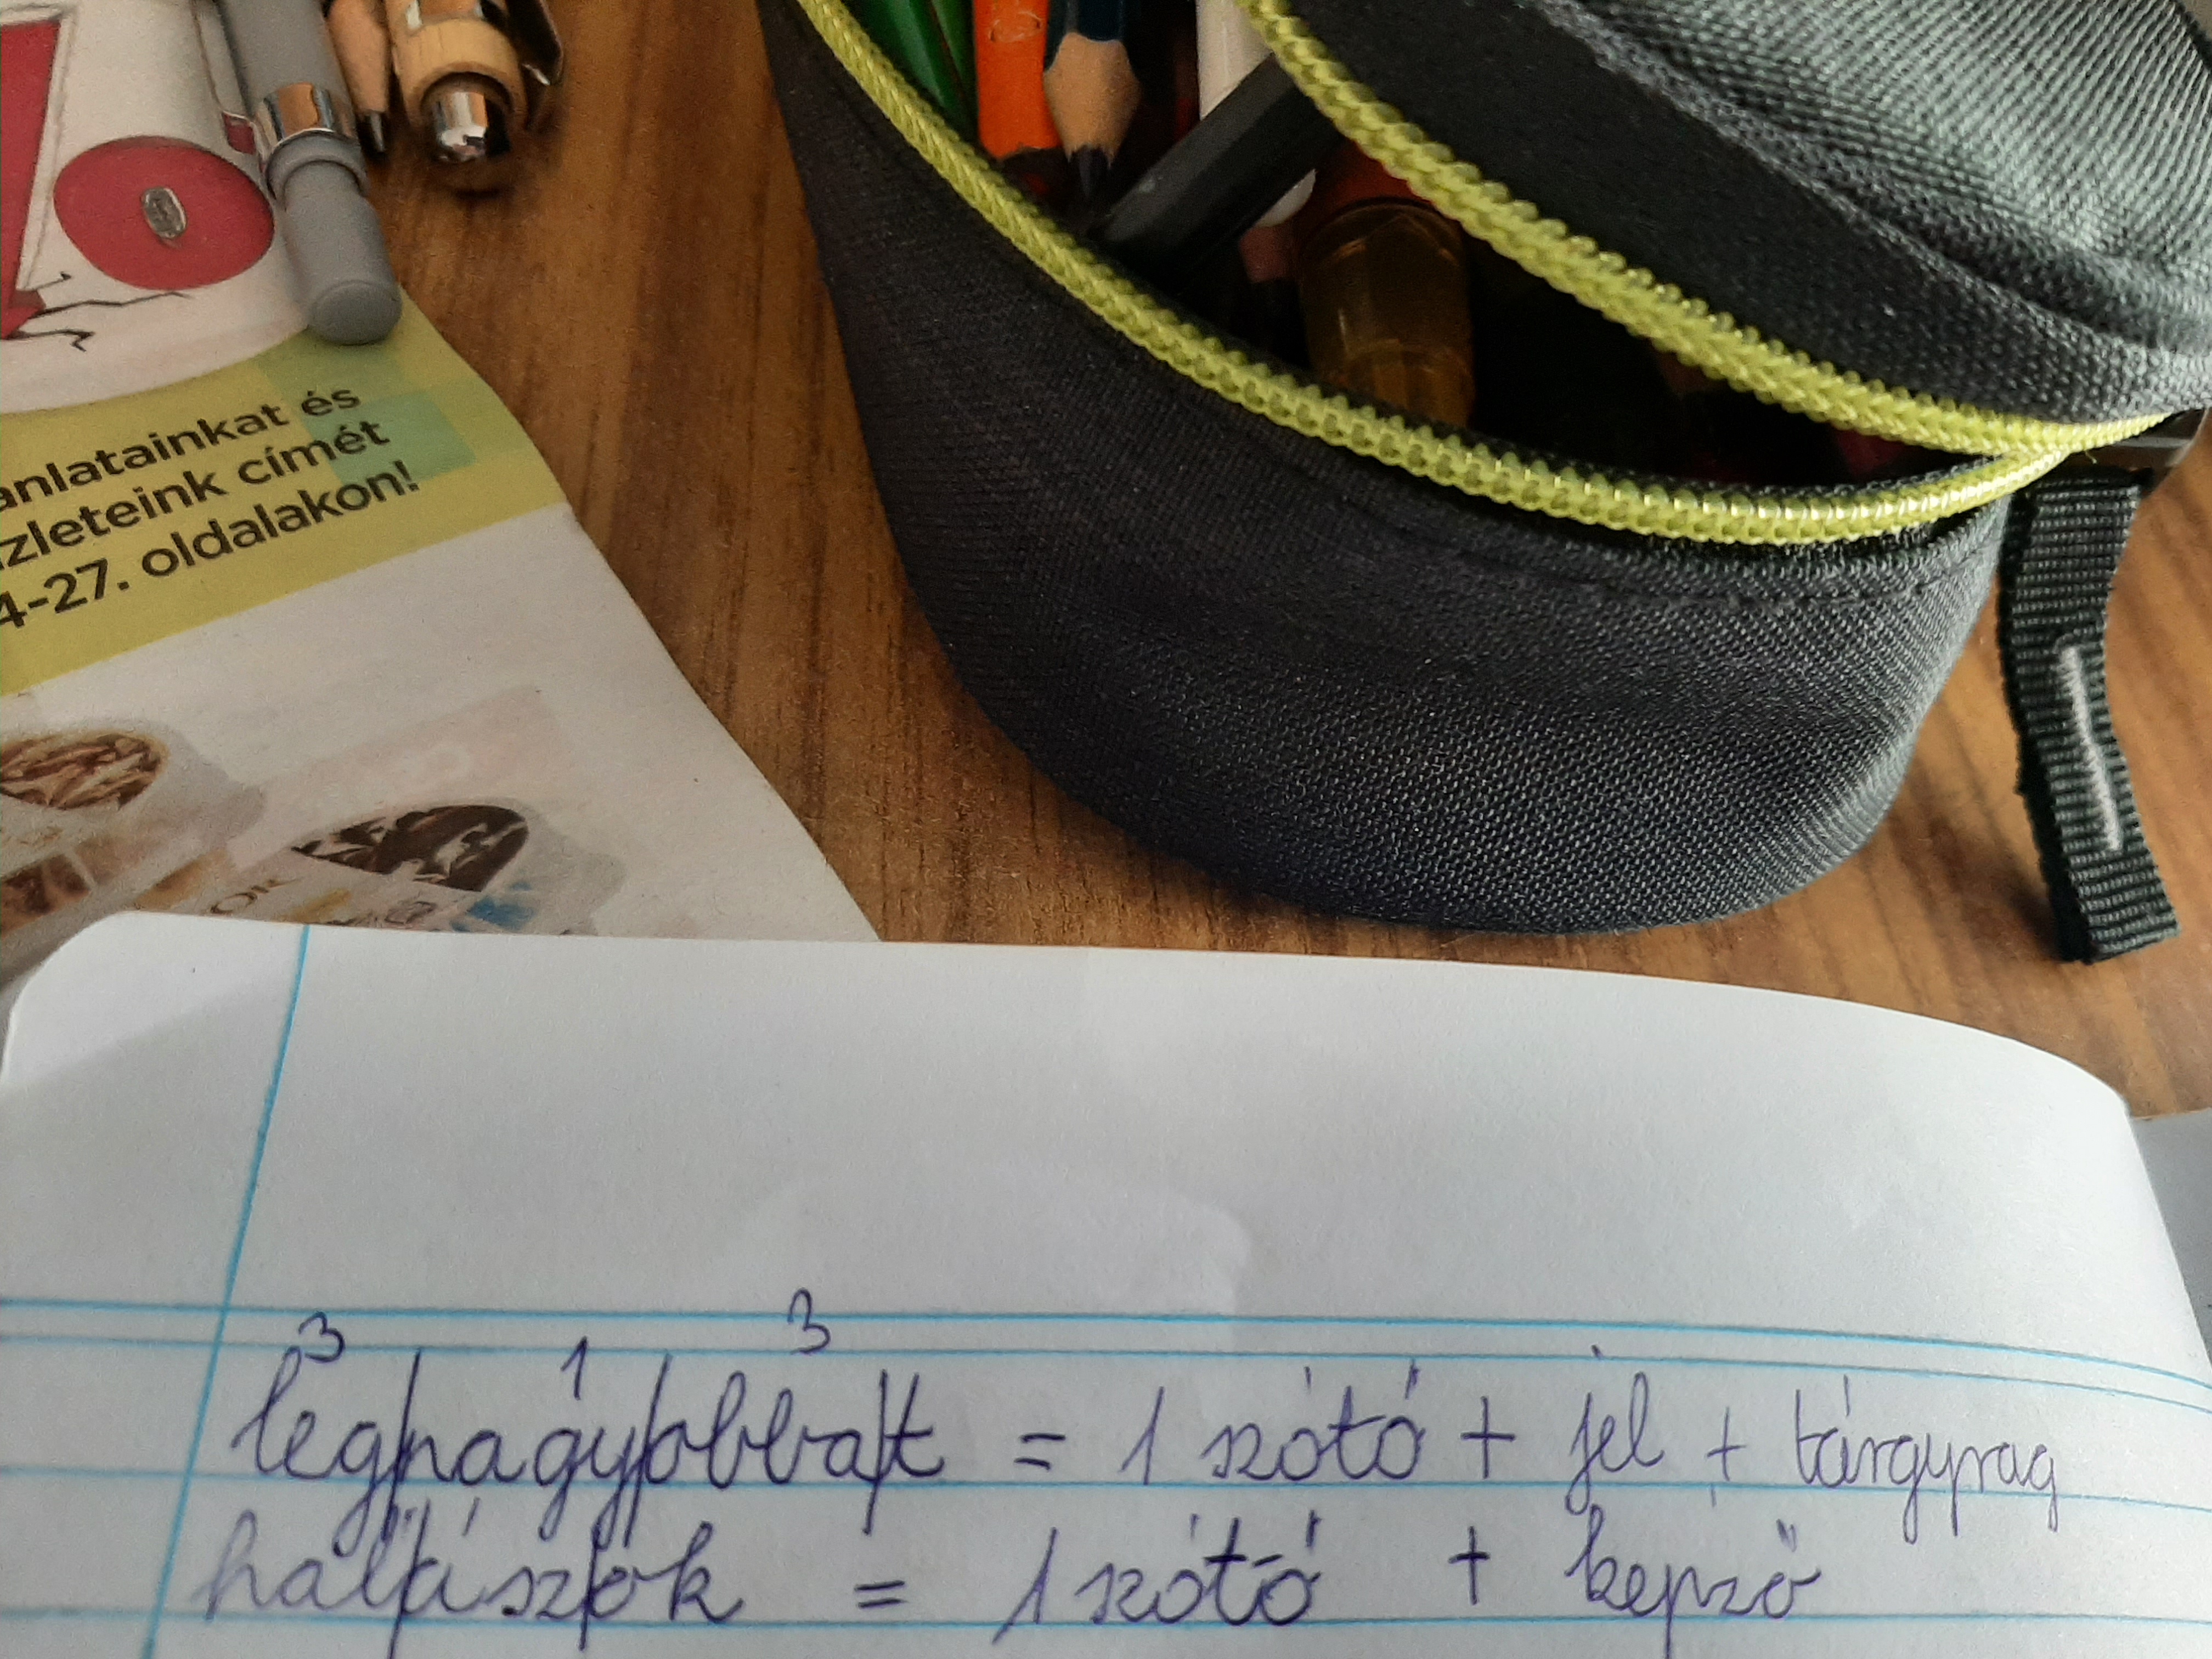 anlatainkat és
zleteink címét
4-27. oldalakon!
3 1 3
leg/nagy/obba/t = 1 szótó + jel + tárgyrag
hal/ász/ok = 1 szótó + kepző